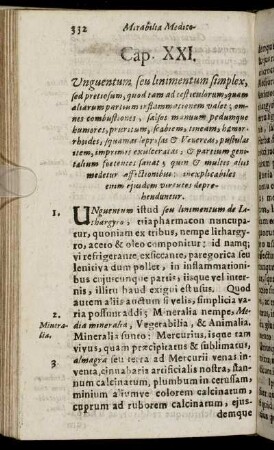 332 Mirabilia Medico-
Cap. XXI.
Unguentum, seu linimentum simplex,
sed pretiosum, quod tam ad testiculorum, quam
aliarum partium inflammationem valet; om-
nes combustiones, salsos manuum pedumque
humores, pruritum, scabiem, tineam, hæmor-
rhoides, squamas lepræ & Venereas, pustulas
item, impetigines exulceratas, & partium geni-
talium foetentes sanat; quin & multis aliis
medetur affectionibus: inexplicabiles
enim ejusdem virtutes depre-
henduntur.
1. UNguentum istud seu linimentum de Li-
thargyro, triapharmacon nuncupa-
tur, quoniam ex tribus, nempe lithargy-
ro, aceto & oleo componitur: id namq;
vi refrigerante, exiccante, paregorica seu
lenitiva dum pollet, in inflammationi-
bus cujuscunque partis, iisque vel inter-
nis, illiti haud exigui est usus. Quod
autem aliis auctum si velis, simplicia va-
2. ria possunt addi; Mineralia nempe, Me-
Minera- dia mineralia, Vegetabilia, & Animalia.
lia. Mineralia sunto: Mercurius, isque tam
vivus, quam præcipitatus & sublimatus,
3. almagra seu terra ad Mercurii venas in-
venta, cinnabaris artificialis nostra, stan-
num calcinatum, plumbum in cerussam,
minium aliumve colorem calcinatum,
cuprum ad ruborem calcinatum, ejus-
demque